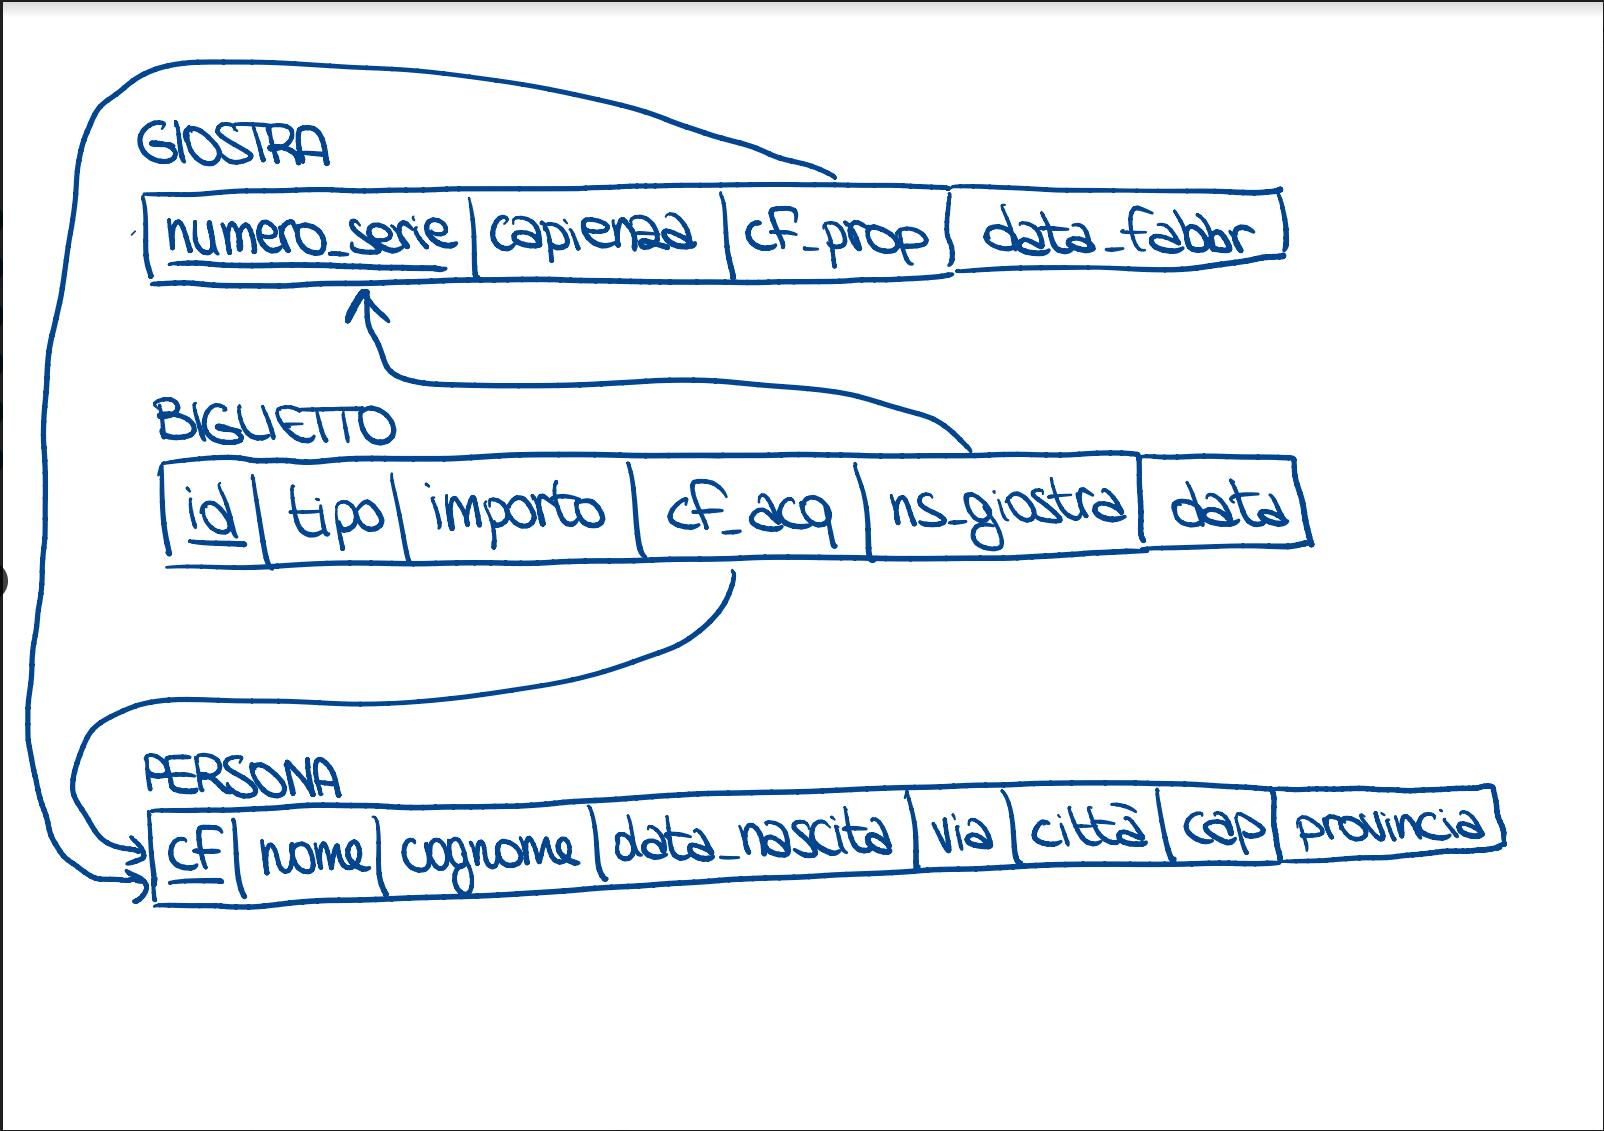 GIOSTRA
numero_serie capienza cf_prop data_fabbr
BIGLIETTO
id tipo importo cf_acq ns_giostra data
PERSONA
cf nome cognome data_nascita via città cap provincia